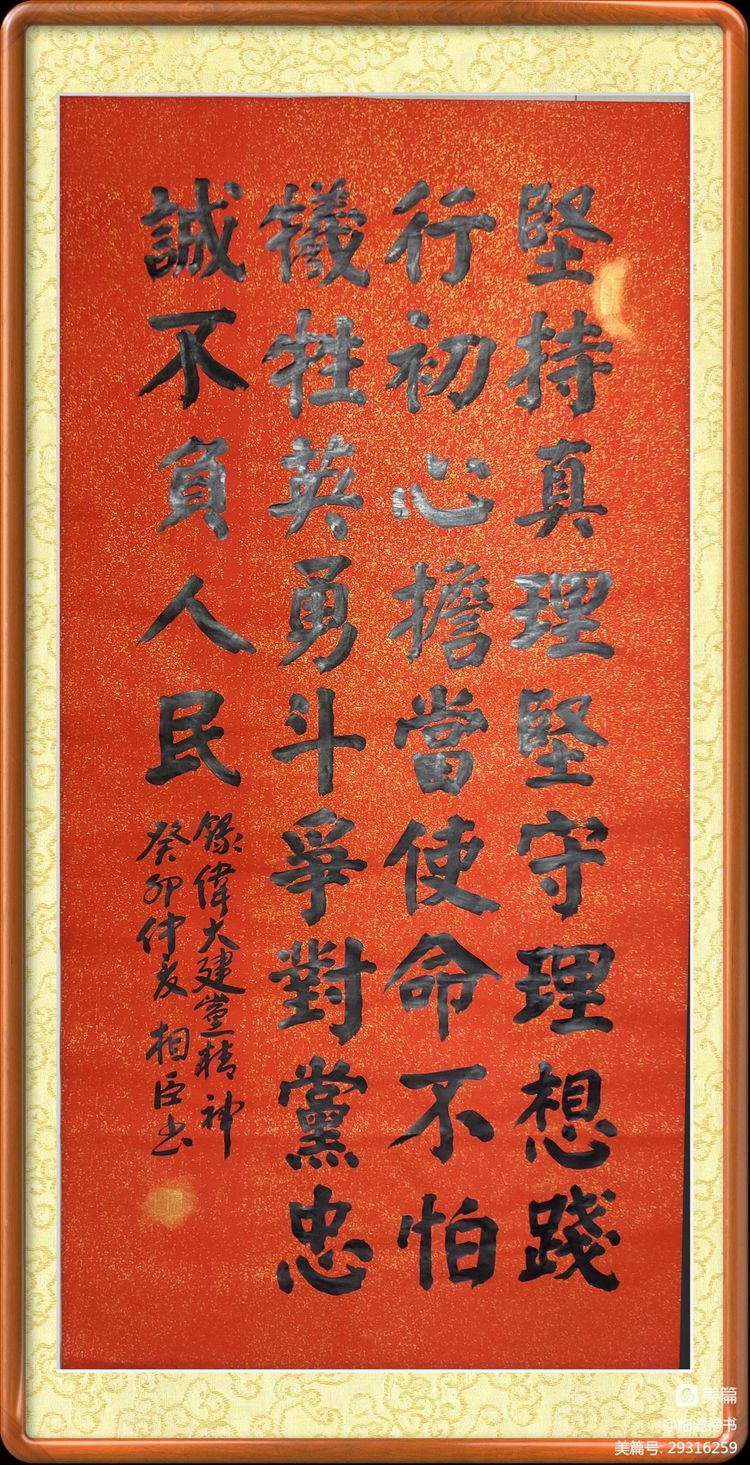 堅持真理堅守理想踐
行初心擔當使命不怕
犧牲英勇斗爭對黨忠
誠不負人民
錄偉大建黨精神
癸卯仲夏相臣书
美篇
@临淄榜书
美篇号: 29316259